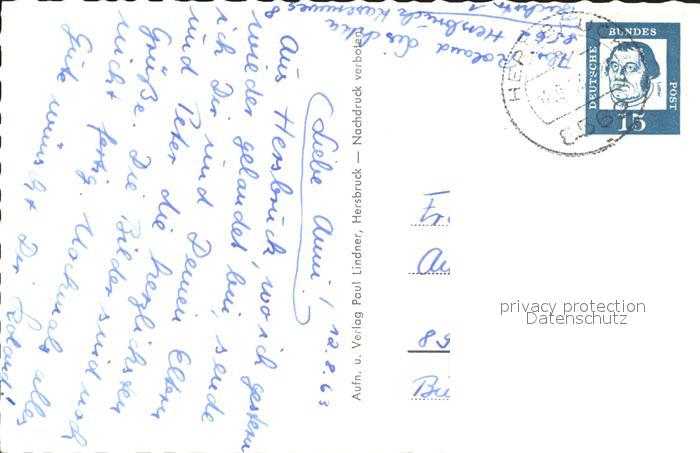 Liebe Anni! 12.8.63
Aus Hersbruck, wo ich gestern
wieder gelandet bin, sende
ich Dir und Deinen Eltern
und Peter die herzlichsten
Grüße. Die Bilder sind noch
nicht fertig. Nochmals alles
Gute wünscht Dir Roland!
Abs. Roland
8562 Hersbruck
Aufn. u. Verlag Paul Lindner, Hersbruck — Nachdruck verboten
DEUTSCHE
BUNDES
POST
Luther
15
8562
Fr
An
85
privacy protection
Datenschutz